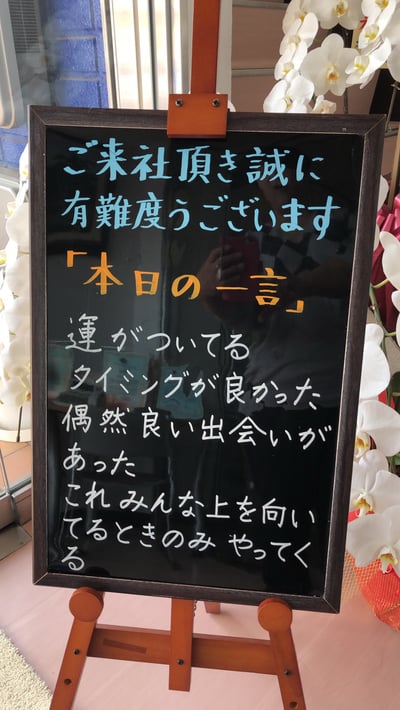 ご来社頂き誠に
有難度うございます
「本日の一言」
運がついてる
タイミングが良かった
偶然良い出会いが
あった
これみんな上を向い
てるときのみ やってく
る